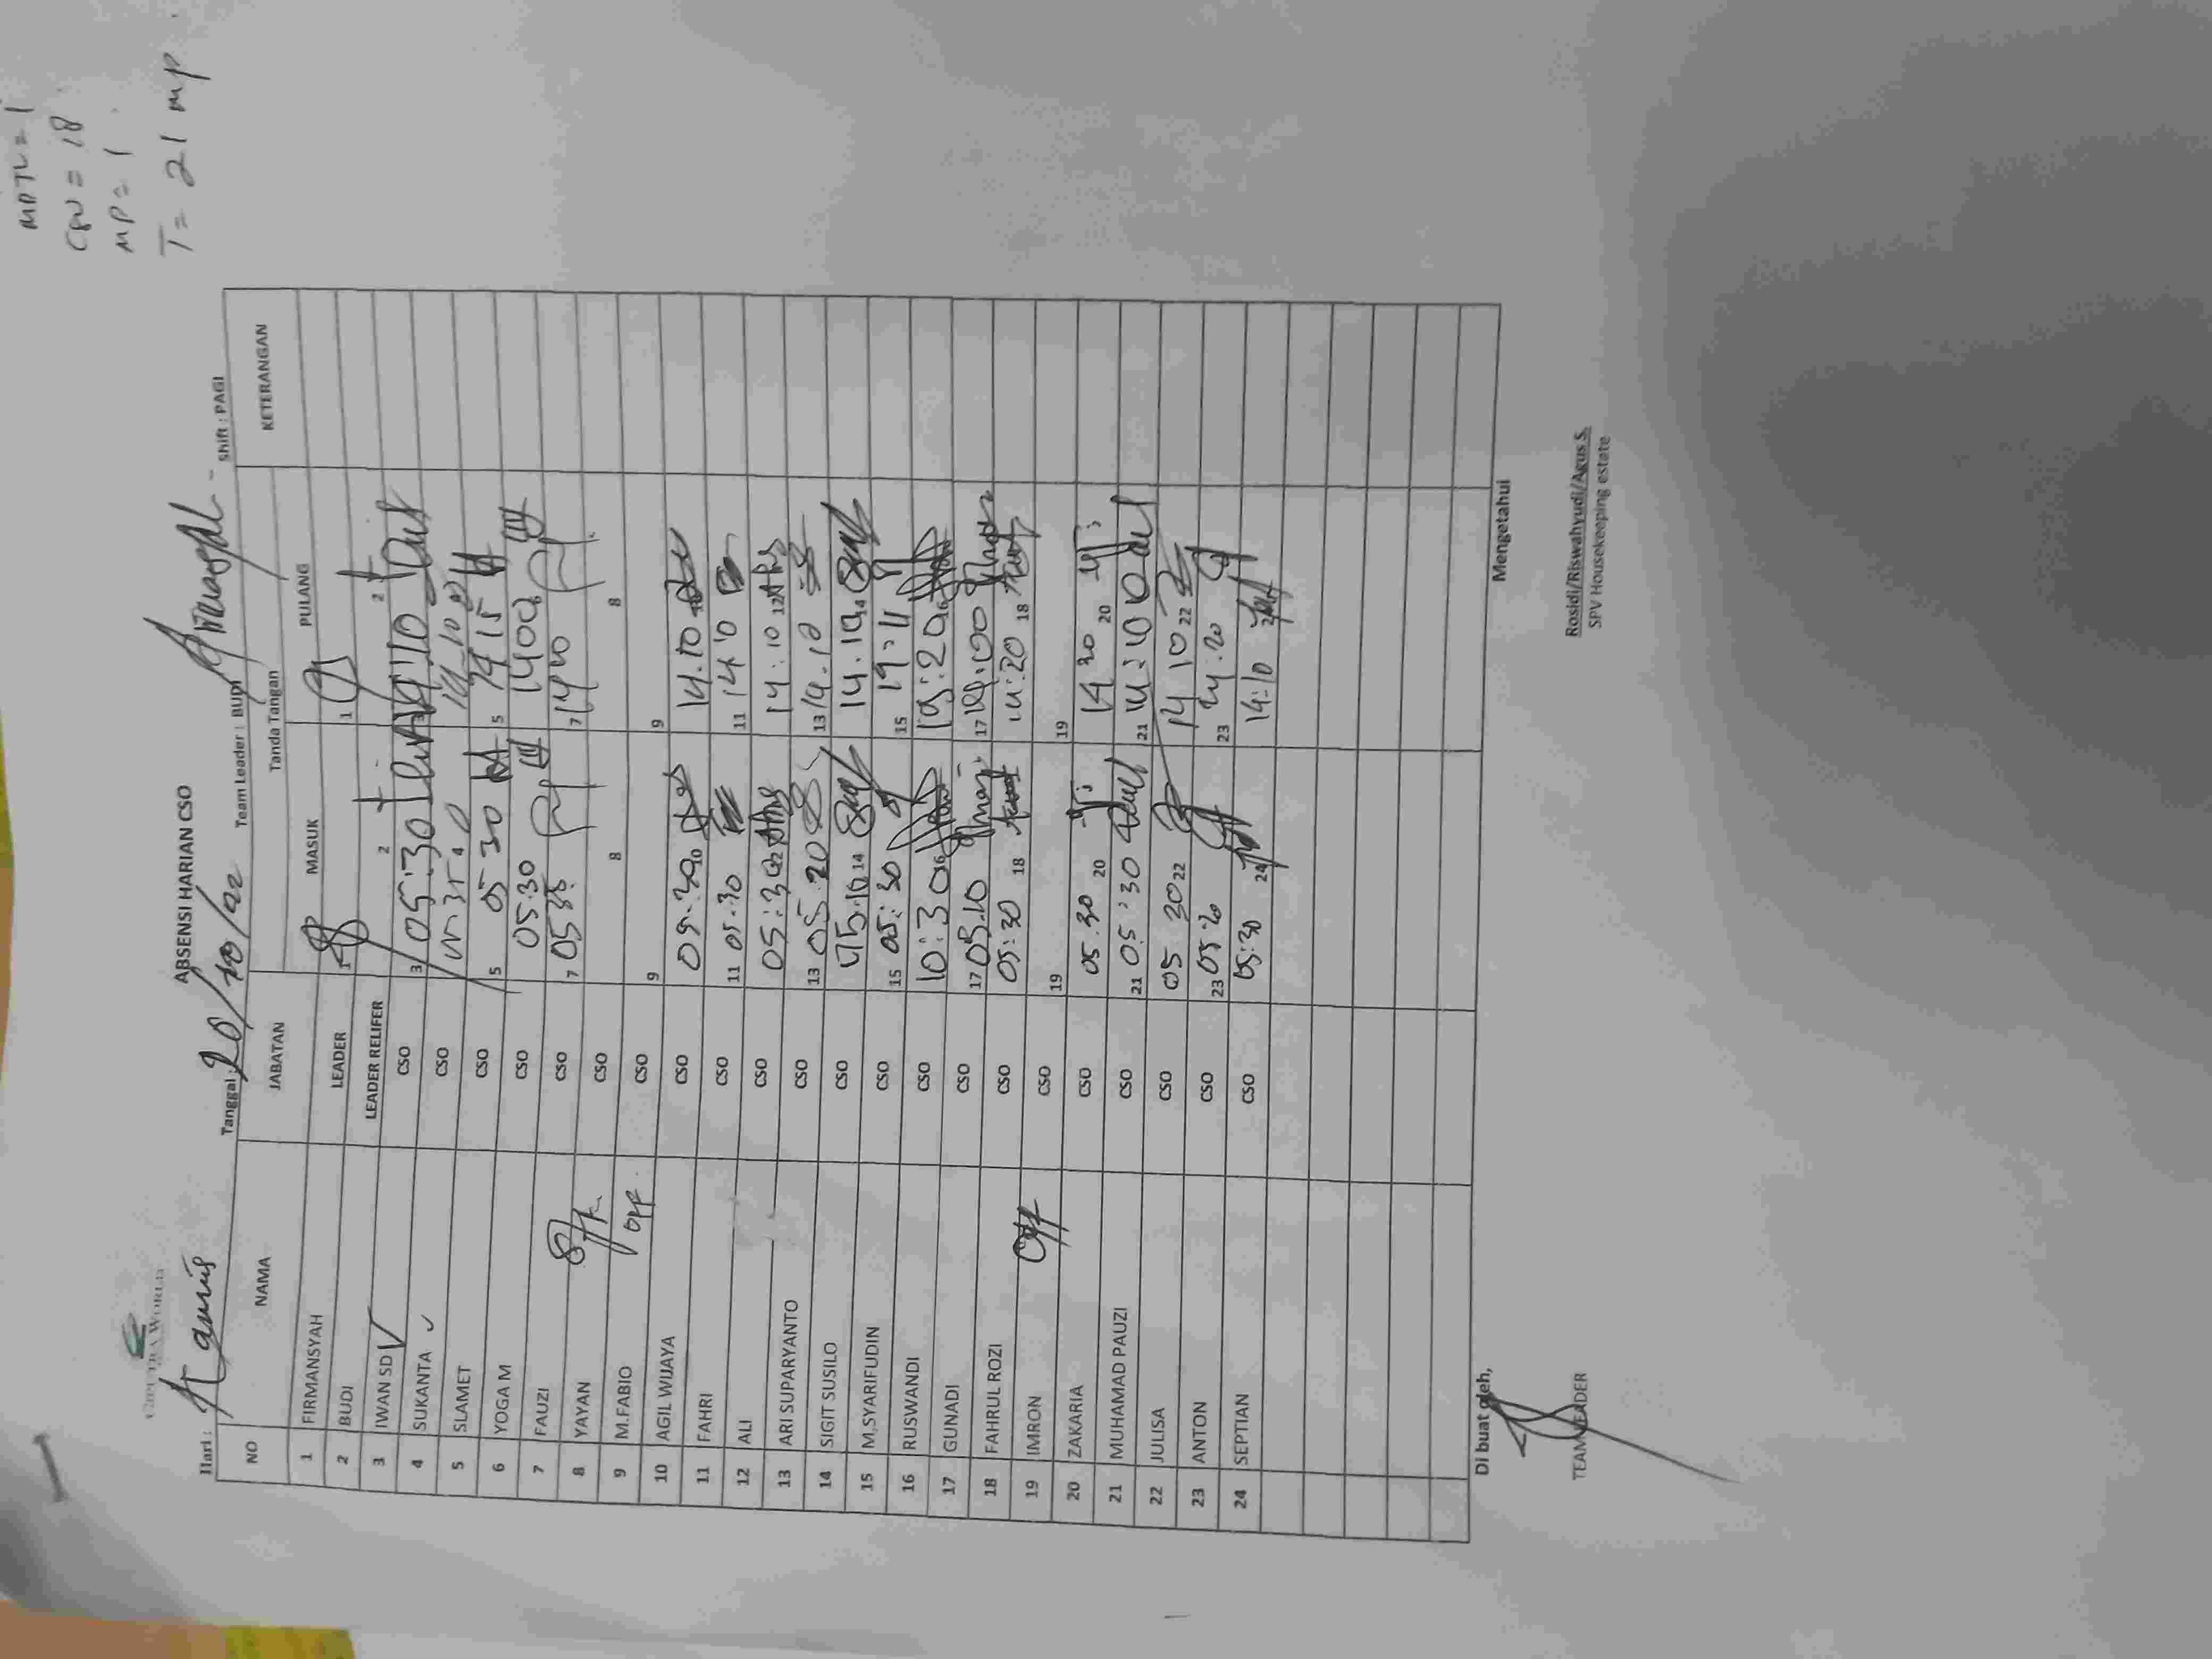 MPTL = 1
CSO = 18
MP = 1
T = 21 MP
CIPUTRA WORLD
ABSENSI HARIAN CSO
Hari : Kamis Tanggal : 20/10/22 Team Leader : BUDI Shift : PAGI
NO NAMA JABATAN Tanda Tangan KETERANGAN
MASUK PULANG
1 FIRMANSYAH LEADER 1 1
2 BUDI LEADER RELIFER 2 2
3 IWAN SD CSO 3 05:30 3
4 SUKANTA CSO 4 14.10
5 SLAMET CSO 5 05 30 5 14 15
6 YOGA M CSO 05:30 1400
7 FAUZI CSO 7 0535 7
8 YAYAN Off CSO 8 8
9 M.FABIO OFF CSO 9 9
10 AGIL WIJAYA CSO 05.30 14.10
11 FAHRI CSO 11 05.30 11 14 10
12 ALI CSO 05:30 14:10 12
13 ARI SUPARYANTO CSO 13 05.20 13 14.10
14 SIGIT SUSILO CSO 14 14.10 14
15 M,SYARIFUDIN CSO 15 05:30 15
16 RUSWANDI CSO 10:30 19:20
17 GUNADI CSO 17 05.10 17
18 FAHRUL ROZI CSO 05:30 18 14:20 18
19 IMRON Off CSO 19 19
20 ZAKARIA CSO 05.30 20 14 20 20
21 MUHAMAD PAUZI CSO 21 05:30 21
22 JULISA CSO 05 30 22 14 10 22
23 ANTON CSO 23 05.20 23 14.20
24 SEPTIAN CSO 05:30 24 14:10
Di buat oleh, Mengetahui
TEAM LEADER Rosidi/Riswahyudi/Agus S.
SPV Housekeeping estate